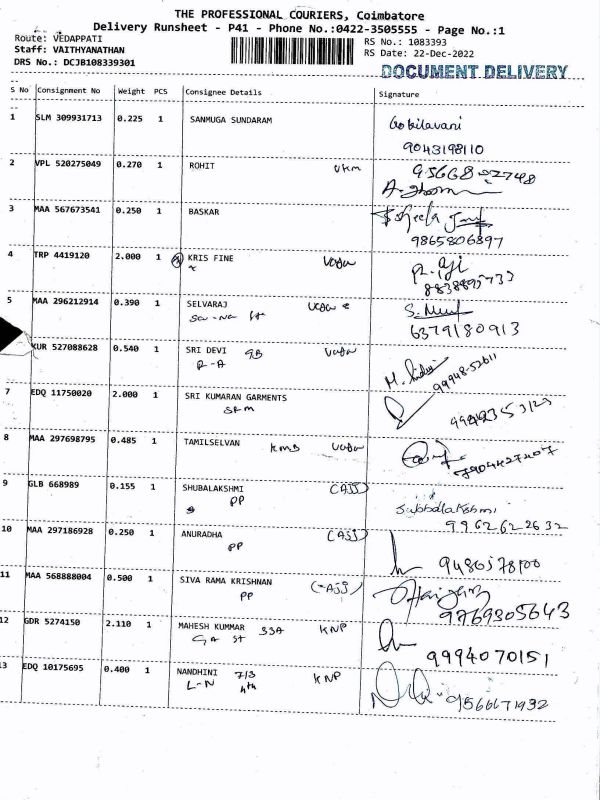 THE PROFESSIONAL COURIERS, Coimbatore
Delivery Runsheet - P41 - Phone No.:0422-3505555 - Page No.:1
Route: VEDAPPATI RS No.: 1083393
Staff: VAITHYANATHAN RS Date: 22-Dec-2022
DRS No.: DCJB108339301 DOCUMENT DELIVERY
S No Consignment No Weight PCS Consignee Details Signature
1 SLM 309931713 0.225 1 SANMUGA SUNDARAM
9043198110
2 VPL 520275049 0.270 1 ROHIT
3 MAA 567673541 0.250 1 BASKAR
9865806897
4 TRP 4419120 2.000 1 KRIS FINE
5 MAA 296212914 0.390 1 SELVARAJ
6379180913
KUR 527088628 0.540 1 SRI DEVI
R-A
7 EDQ 11750020 2.000 1 SRI KUMARAN GARMENTS
SRM
8 MAA 297698795 0.485 1 TAMILSELVAN
9 GLB 668989 0.155 1 SHUBALAKSHMI (ASS)
PP Subbalakshmi
9962622632
10 MAA 297186928 0.250 1 ANURADHA (ASS)
PP
11 MAA 568888004 0.500 1 SIVA RAMA KRISHNAN (ASS)
PP
9769305643
12 GDR 5274150 2.110 1 MAHESH KUMMAR KNP
9994070151
13 EDQ 10175695 0.400 1 NANDHINI 7/3 KNP
L-N 4th
9566671932